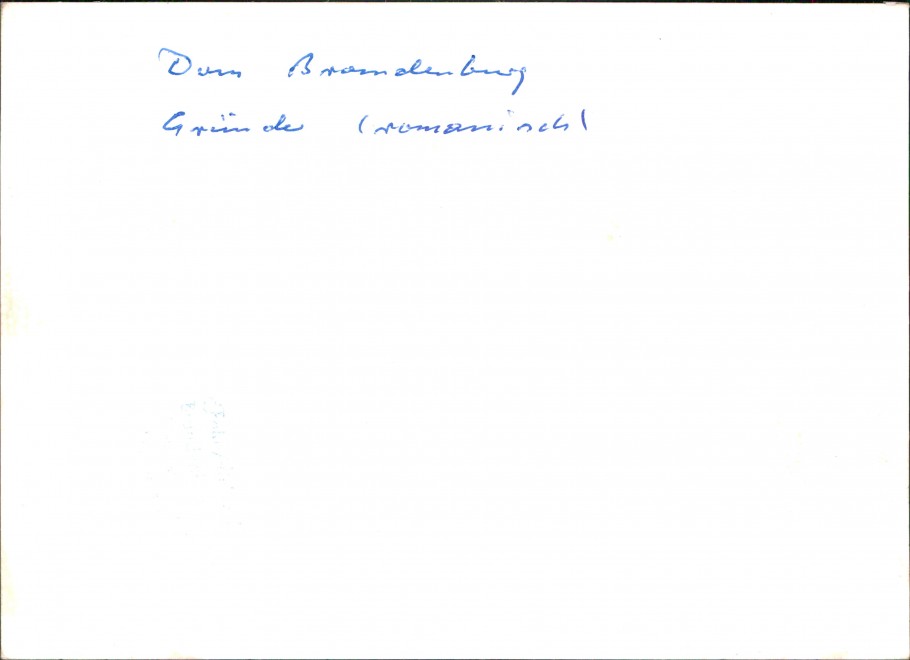 Dom Brandenburg
Gründe (romanisch)